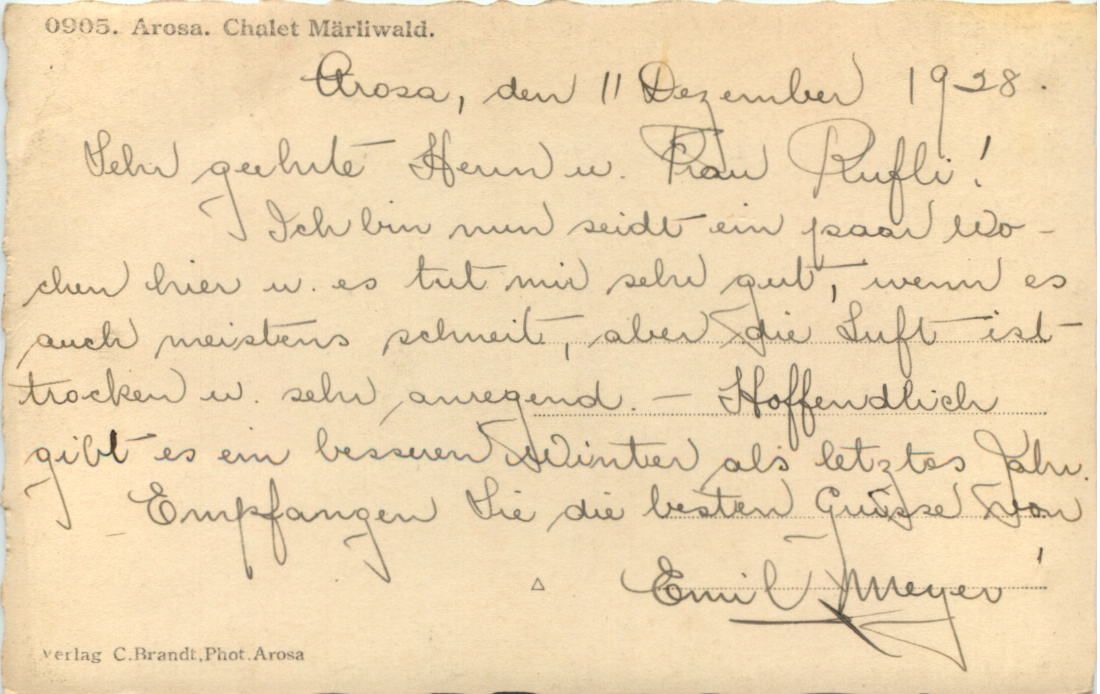 0905. Arosa. Chalet Märliwald.
Arosa, den 11 Dezember 1928.
Sehr geehrte Herrn u. Frau Rufli!
Ich bin nun seidt ein paar Wo-
chen hier u. es tut mir sehr gut, wenn es
auch meistens schneit, aber die Luft ist
trocken u. sehr anregend. — Hoffendlich
gibt es ein besseren Winter als letztes Jahr.
Empfangen Sie die besten Grüsse von
Emil Meyer
Verlag C.Brandt,Phot.Arosa